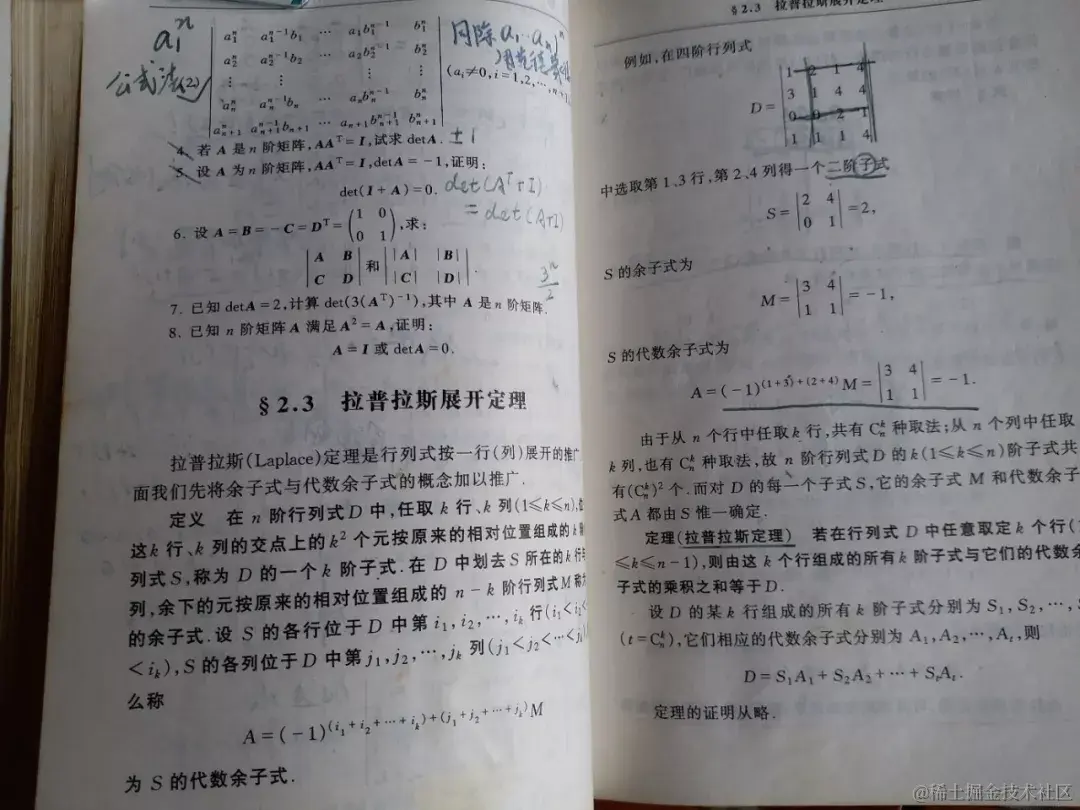 a₁ⁿ
公式法(2)
a₁ⁿ a₁ⁿ⁻¹b₁ ⋯ a₁b₁ⁿ⁻¹ b₁ⁿ
a₂ⁿ a₂ⁿ⁻¹b₂ ⋯ a₂b₂ⁿ⁻¹ b₂ⁿ
⋮ ⋮ ⋮ ⋮
aₙⁿ aₙⁿ⁻¹bₙ ⋯ aₙbₙⁿ⁻¹ bₙⁿ
aₙ₊₁ⁿ aₙ₊₁ⁿ⁻¹bₙ₊₁ ⋯ aₙ₊₁bₙ₊₁ⁿ⁻¹ bₙ₊₁ⁿ
(aᵢ≠0,i=1,2,⋯,n+1)
4. 若 A 是 n 阶矩阵,AAᵀ=I,试求 detA. ±1
5. 设 A 为 n 阶矩阵,AAᵀ=I,detA=-1,证明:
det(I+A)=0. det(Aᵀ+I)
= det(A+I)
6. 设 A=B=-C=Dᵀ= (1 0
0 1) ,求:
|A B
C D| 和 ||A| |B|
|C| |D|| .
3ⁿ/2
7. 已知 detA=2,计算 det(3(Aᵀ)⁻¹),其中 A 是 n 阶矩阵.
8. 已知 n 阶矩阵 A 满足 A²=A,证明:
A=I 或 detA=0.
§2.3 拉普拉斯展开定理
拉普拉斯(Laplace)定理是行列式按一行(列)展开的推广
面我们先将余子式与代数余子式的概念加以推广.
定义 在 n 阶行列式 D 中,任取 k 行、k 列(1≤k≤n),
这 k 行、k 列的交点上的 k² 个元按原来的相对位置组成的 k
列式 S,称为 D 的一个 k 阶子式.在 D 中划去 S 所在的 k 行
列,余下的元按原来的相对位置组成的 n-k 阶行列式 M 称
的余子式.设 S 的各行位于 D 中第 i₁,i₂,⋯,iₖ 行(i₁<i₂<
<iₖ),S 的各列位于 D 中第 j₁,j₂,⋯,jₖ 列(j₁<j₂<⋯<jₖ)
么称
A=(-1)^(i₁+i₂+⋯+iₖ)+(j₁+j₂+⋯+jₖ)M
为 S 的代数余子式.
§2.3 拉普拉斯展开定理
例如,在四阶行列式
1 2 1 4
D= 3 1 4 4
0 0 2 1
1 1 1 4
中选取第 1、3 行,第 2、4 列得一个二阶子式
S= |2 4
0 1| =2,
S 的余子式为
M= |3 4
1 1| =-1,
S 的代数余子式为
A=(-1)^(1+3)+(2+4)M= |3 4
1 1| =-1.
由于从 n 个行中任取 k 行,共有 Cₙᵏ 种取法;从 n 个列中任取
k 列,也有 Cₙᵏ 种取法,故 n 阶行列式 D 的 k(1≤k≤n)阶子式共
有(Cₙᵏ)² 个.而对 D 的每一个子式 S,它的余子式 M 和代数余子
式 A 都由 S 惟一确定.
定理(拉普拉斯定理) 若在行列式 D 中任意取定 k 个行(1
≤k≤n-1),则由这 k 个行组成的所有 k 阶子式与它们的代数余
子式的乘积之和等于 D.
设 D 的某 k 行组成的所有 k 阶子式分别为 S₁,S₂,⋯,S
(t=Cₙᵏ),它们相应的代数余子式分别为 A₁,A₂,⋯,Aₜ,则
D=S₁A₁+S₂A₂+⋯+SₜAₜ.
定理的证明从略.
@稀土掘金技术社区